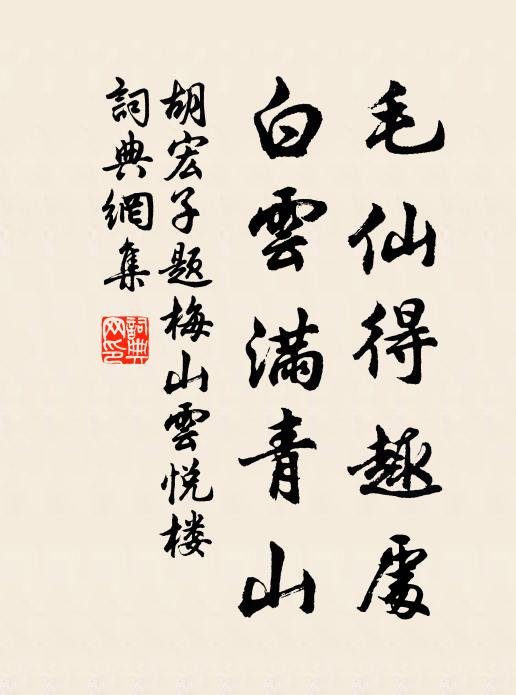 毛仙得趣處
白雲滿青山
胡宏子題梅山雲悦楼
詞典網集
詞典网印